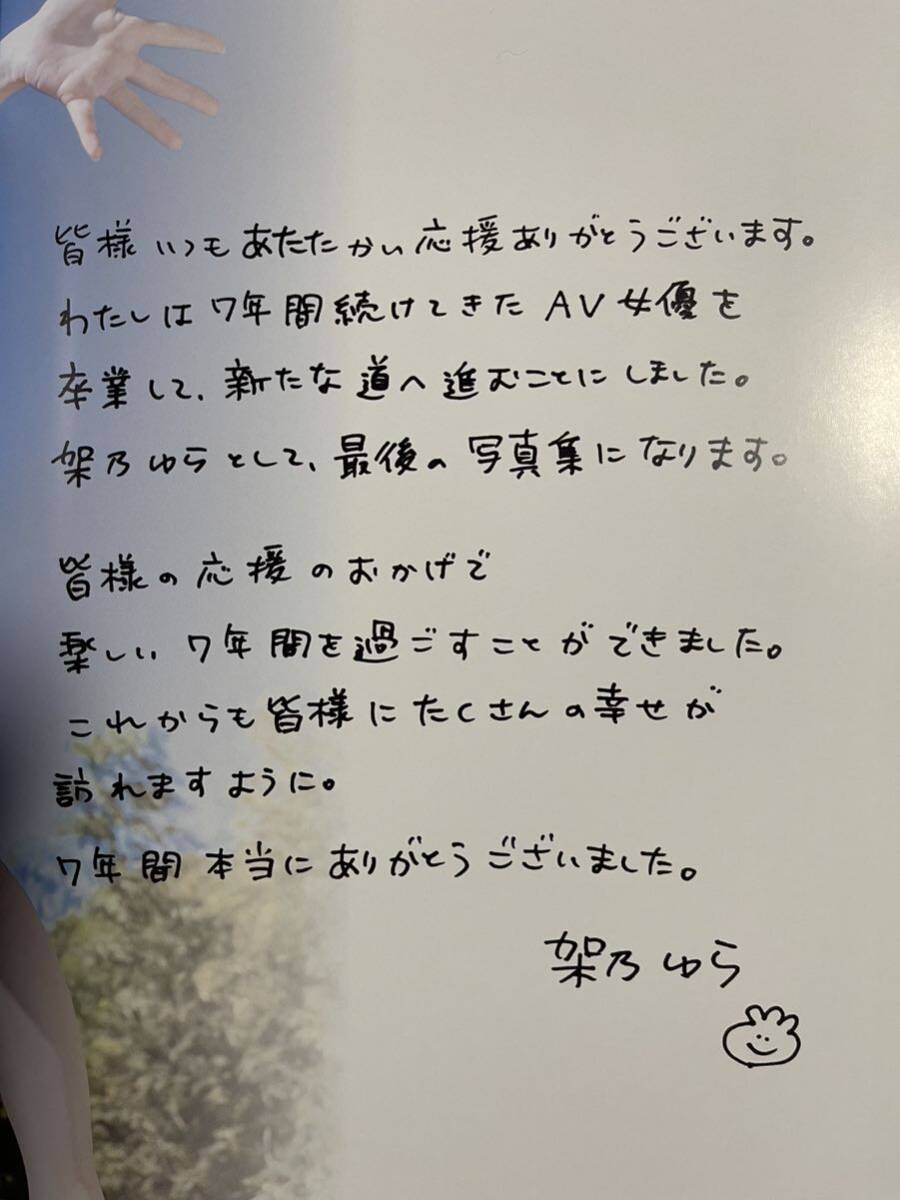 皆様いつもあたたかい応援ありがとうございます。
わたしは7年間続けてきたAV女優を
卒業して、新たな道へ進むことにしました。
架乃ゆらとして、最後の写真集になります。
皆様の応援のおかげで
楽しい7年間を過ごすことができました。
これからも皆様にたくさんの幸せが
訪れますように。
7年間本当にありがとうございました。
架乃ゆら